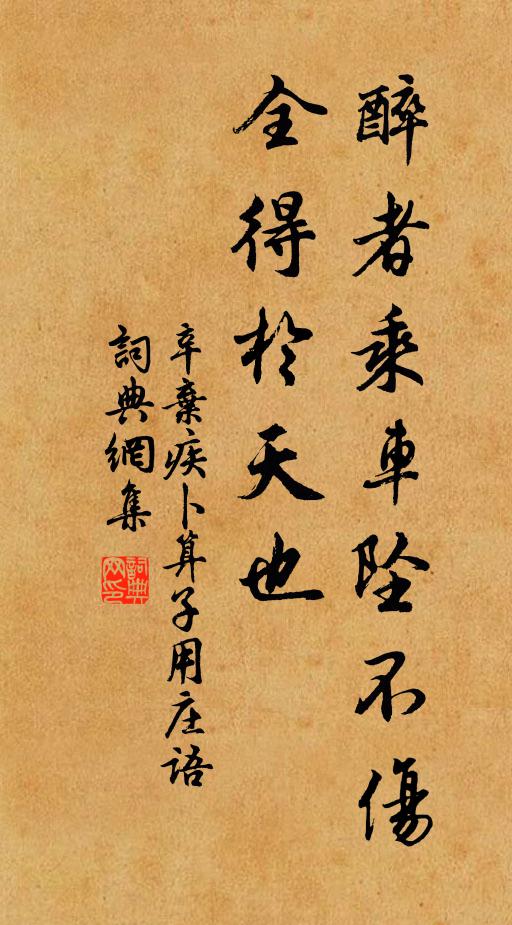 醉者乘車墜不傷
全得於天也
辛棄疾卜算子用庄語
詞典網集
詞典網印